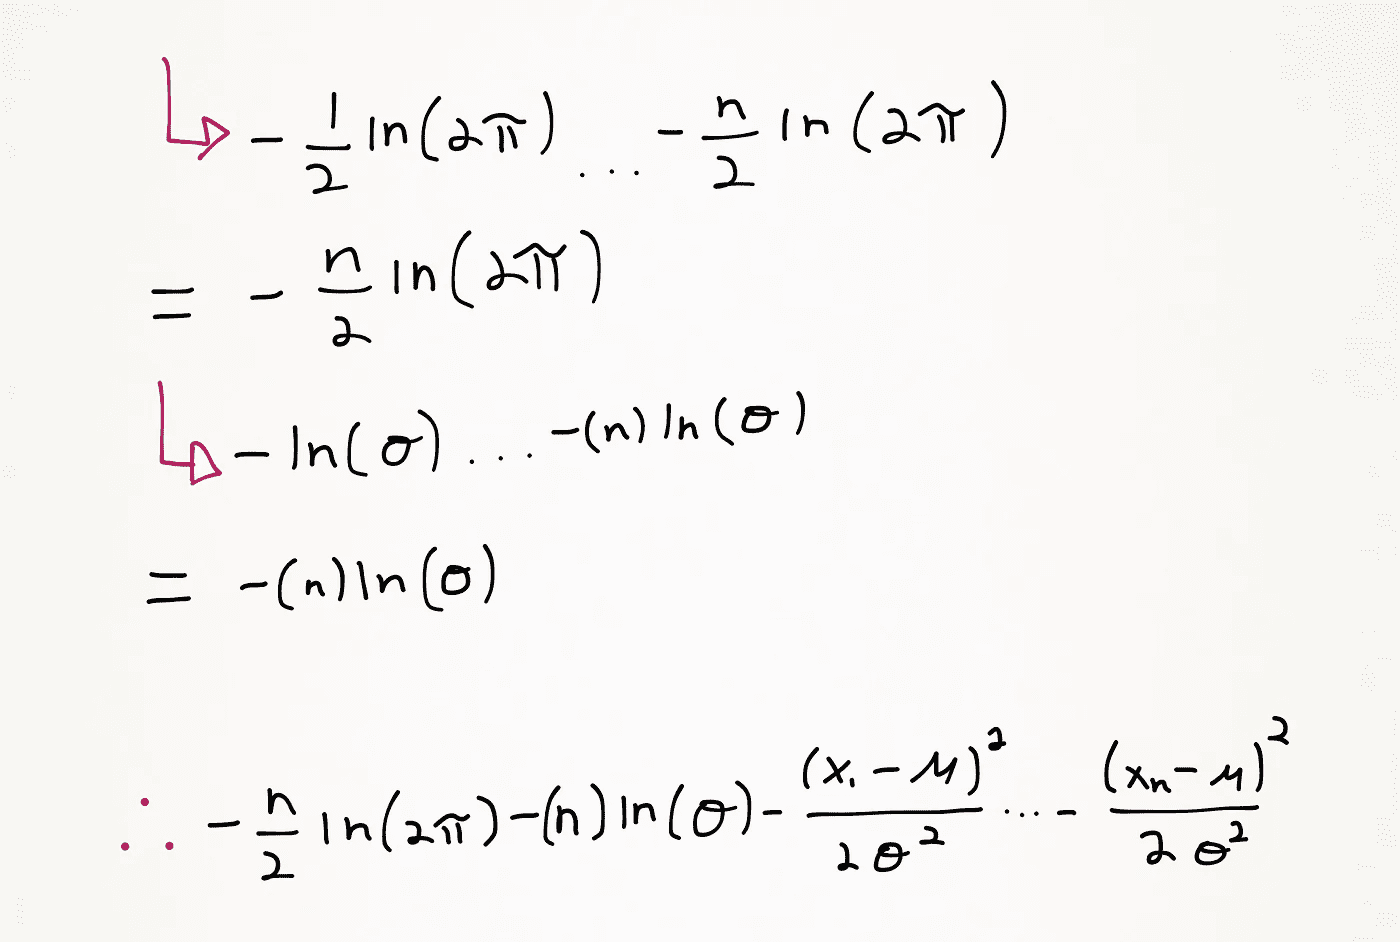 - 1/2 ln(2π) ... - n/2 ln(2π)
= - n/2 ln(2π)
- ln(σ) ... -(n) ln(σ)
= -(n) ln(σ)
∴ - n/2 ln(2π) - (n) ln(σ) - (x₁ - μ)²/2σ² ... - (xₙ - μ)²/2σ²